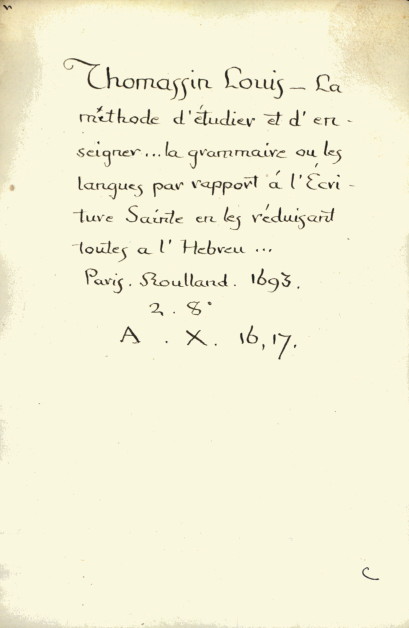 Thomassin Louis - La
méthode d'étudier et d'en-
seigner...la grammaire ou les
langues par rapport á l'Écri-
ture Sainte en les réduisant
toutes a l'Hebreu ...
Paris. Roulland. 1693.
2. 8°
A . X. 16,17.
C